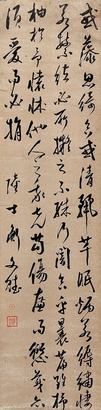 或藻思綺合清麗芊眠炳若縟繡悽
若繁絃必所擬之不殊乃闇合乎曩篇雖杼
柚於予懷怵他人之我先苟傷廉而愆義亦
雖愛而必捐 陸士衡文賦